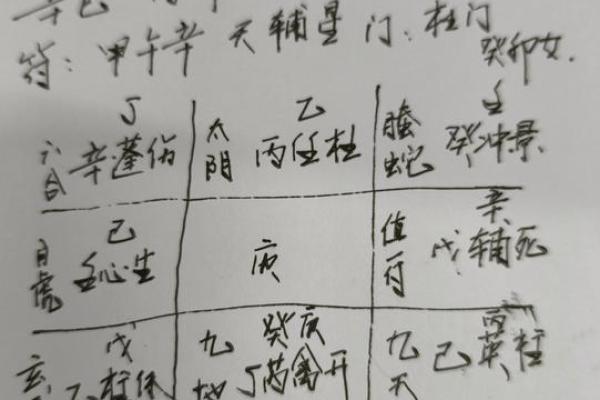 符：甲午辛 天辅星 门：杜门
癸卯女.
丁 乙 壬
六合 辛蓬伤 太阴 丙任杜 螣蛇 癸冲景
己 辛
白虎 壬心生 庚 值符 戊辅死
戊 癸庚
玄 乙柱休 九地 丁芮禽开 九天 己英